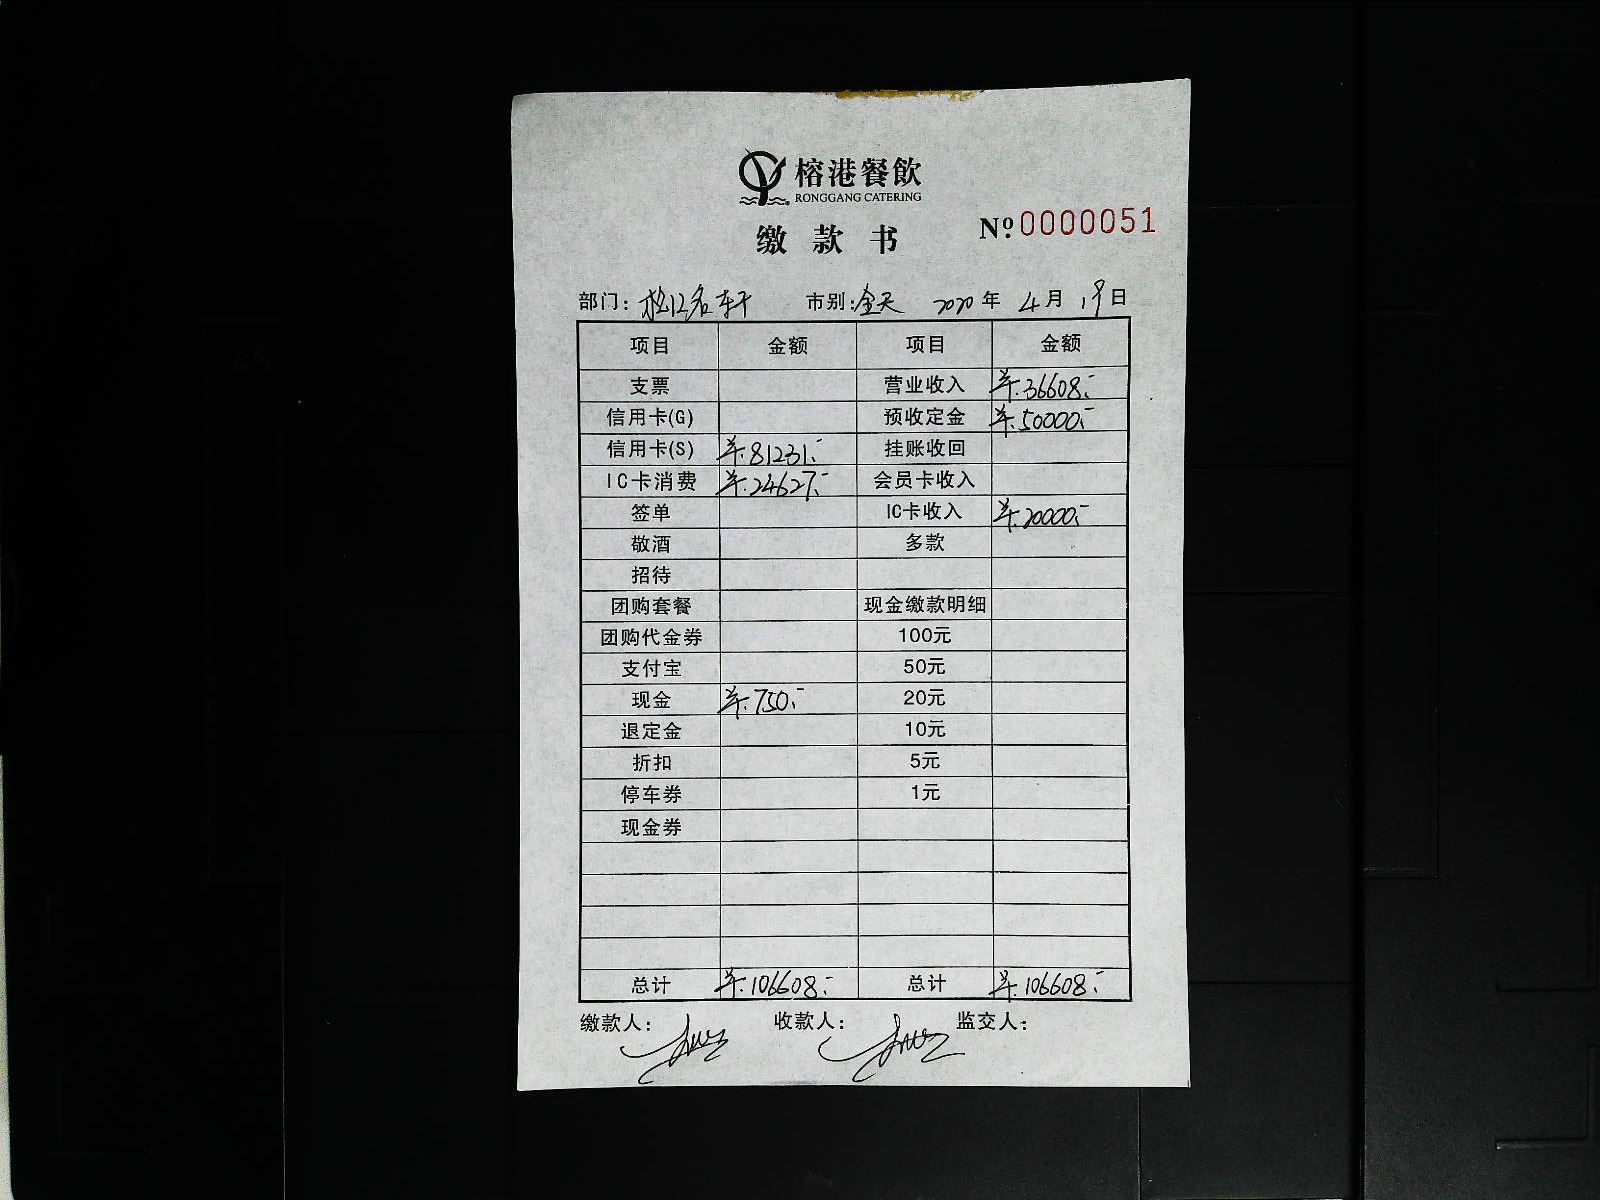 榕港餐飲
RONGGANG CATERING
缴款书
№:0000051
部门: 名轩 市别:全天 2020年4月19日
项目 金额 项目 金额
支票 营业收入 ¥:36608.-
信用卡(G) 预收定金 ¥:50000.-
信用卡(S) ¥:81231.- 挂账收回
IC卡消费 ¥:24627.- 会员卡收入
签单 IC卡收入 ¥:20000.-
敬酒 多款
招待
团购套餐 现金缴款明细
团购代金券 100元
支付宝 50元
现金 ¥:750.- 20元
退定金 10元
折扣 5元
停车券 1元
现金券
总计 ¥:106608.- 总计 ¥:106608.-
缴款人: 收款人: 监交人: